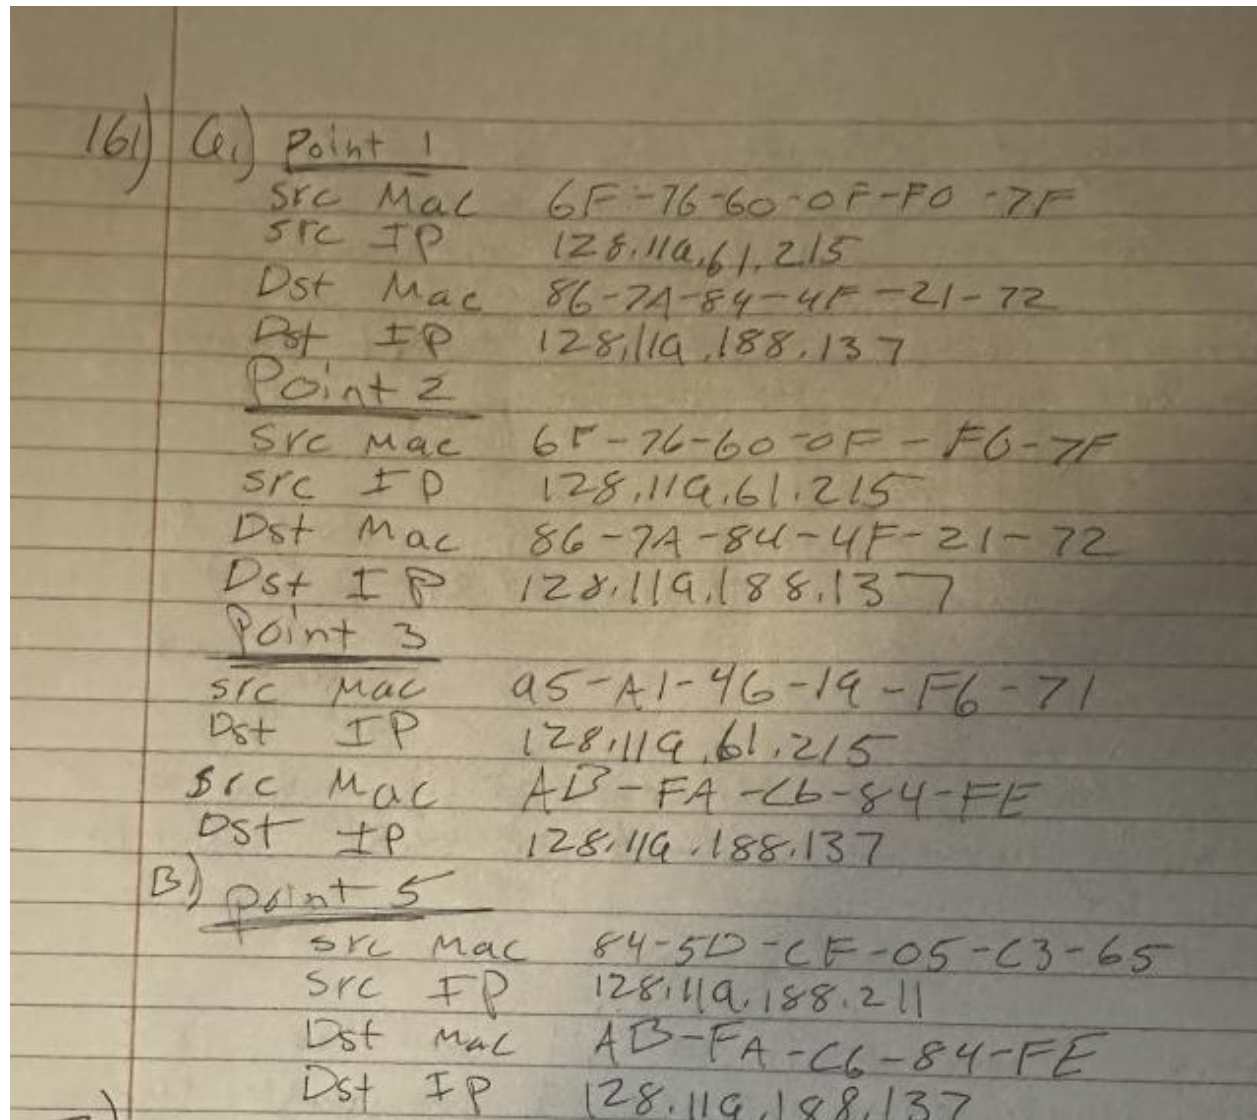 161) a.) Point 1
Src Mac 6F-76-60-0F-F0-7F
Src IP 128.119.61.215
Dst Mac 86-7A-84-4F-21-72
Dst IP 128.119.188.137
Point 2
Src Mac 6F-76-60-0F-F0-7F
Src IP 128.119.61.215
Dst Mac 86-7A-84-4F-21-72
Dst IP 128.119.188.137
Point 3
src Mac 95-A1-46-19-F6-71
Dst IP 128.119.61.215
src Mac AB-FA-C6-84-FE
Dst IP 128.119.188.137
B) point 5
src Mac 84-5D-CE-05-C3-65
Src IP 128.119.188.211
Dst Mac AB-FA-C6-84-FE
Dst IP 128.119.188.137